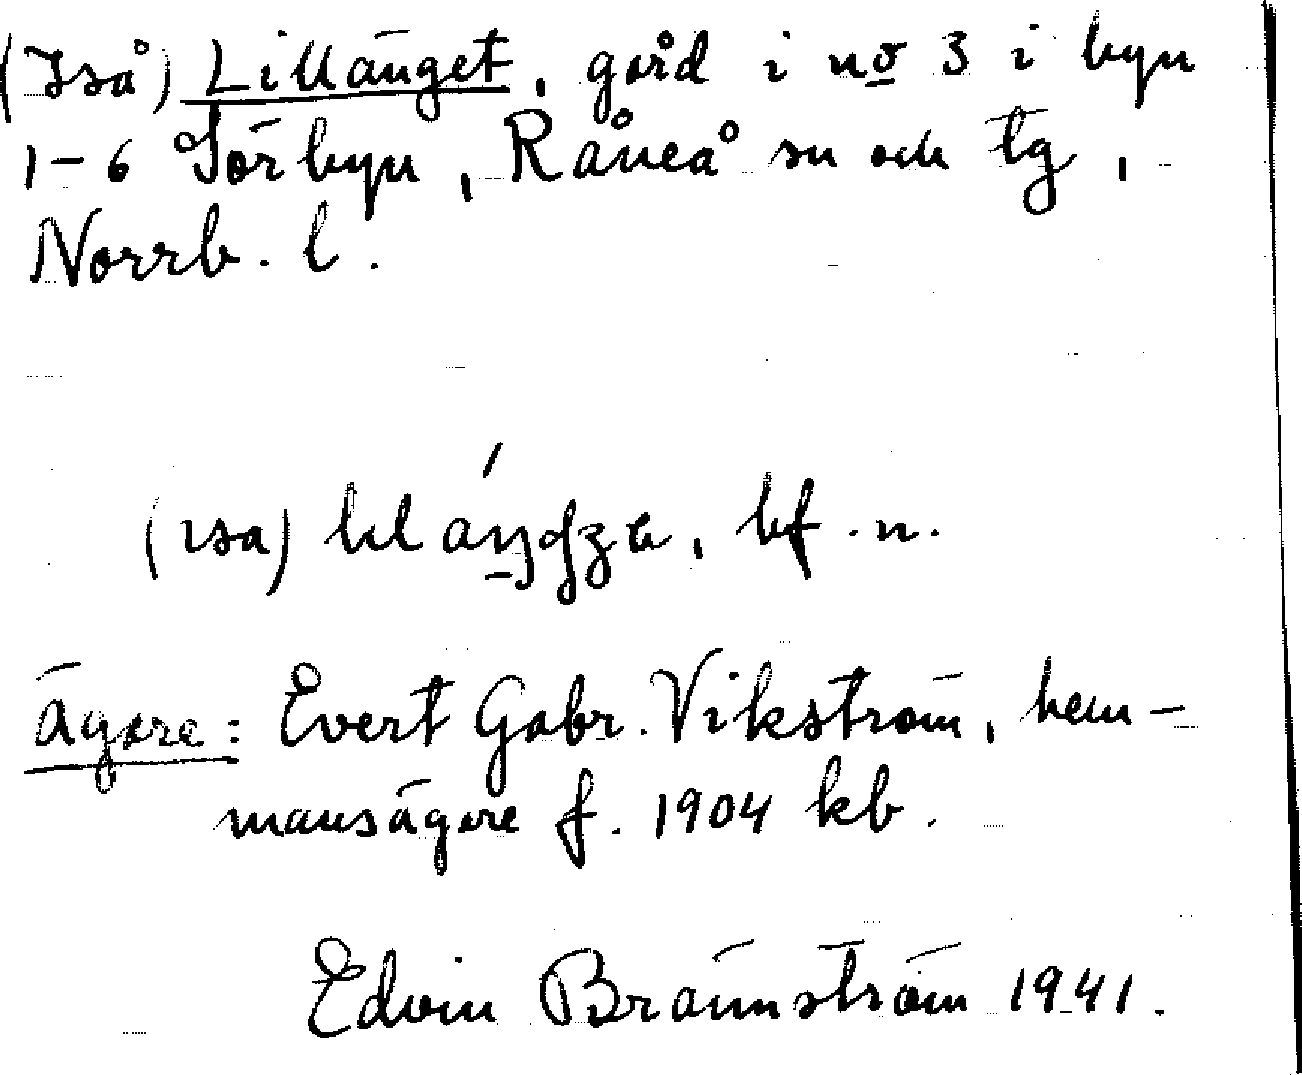 (Iså) Lillänget, gård i no 3 i byn
1-6 Sörbyn, Råneå sn och tg,
Norrb. l.
bf. n.
ägare: Evert Gabr. Vikström, hem-
mansägare f. 1904 kb.
Edvin Brännström 1941.